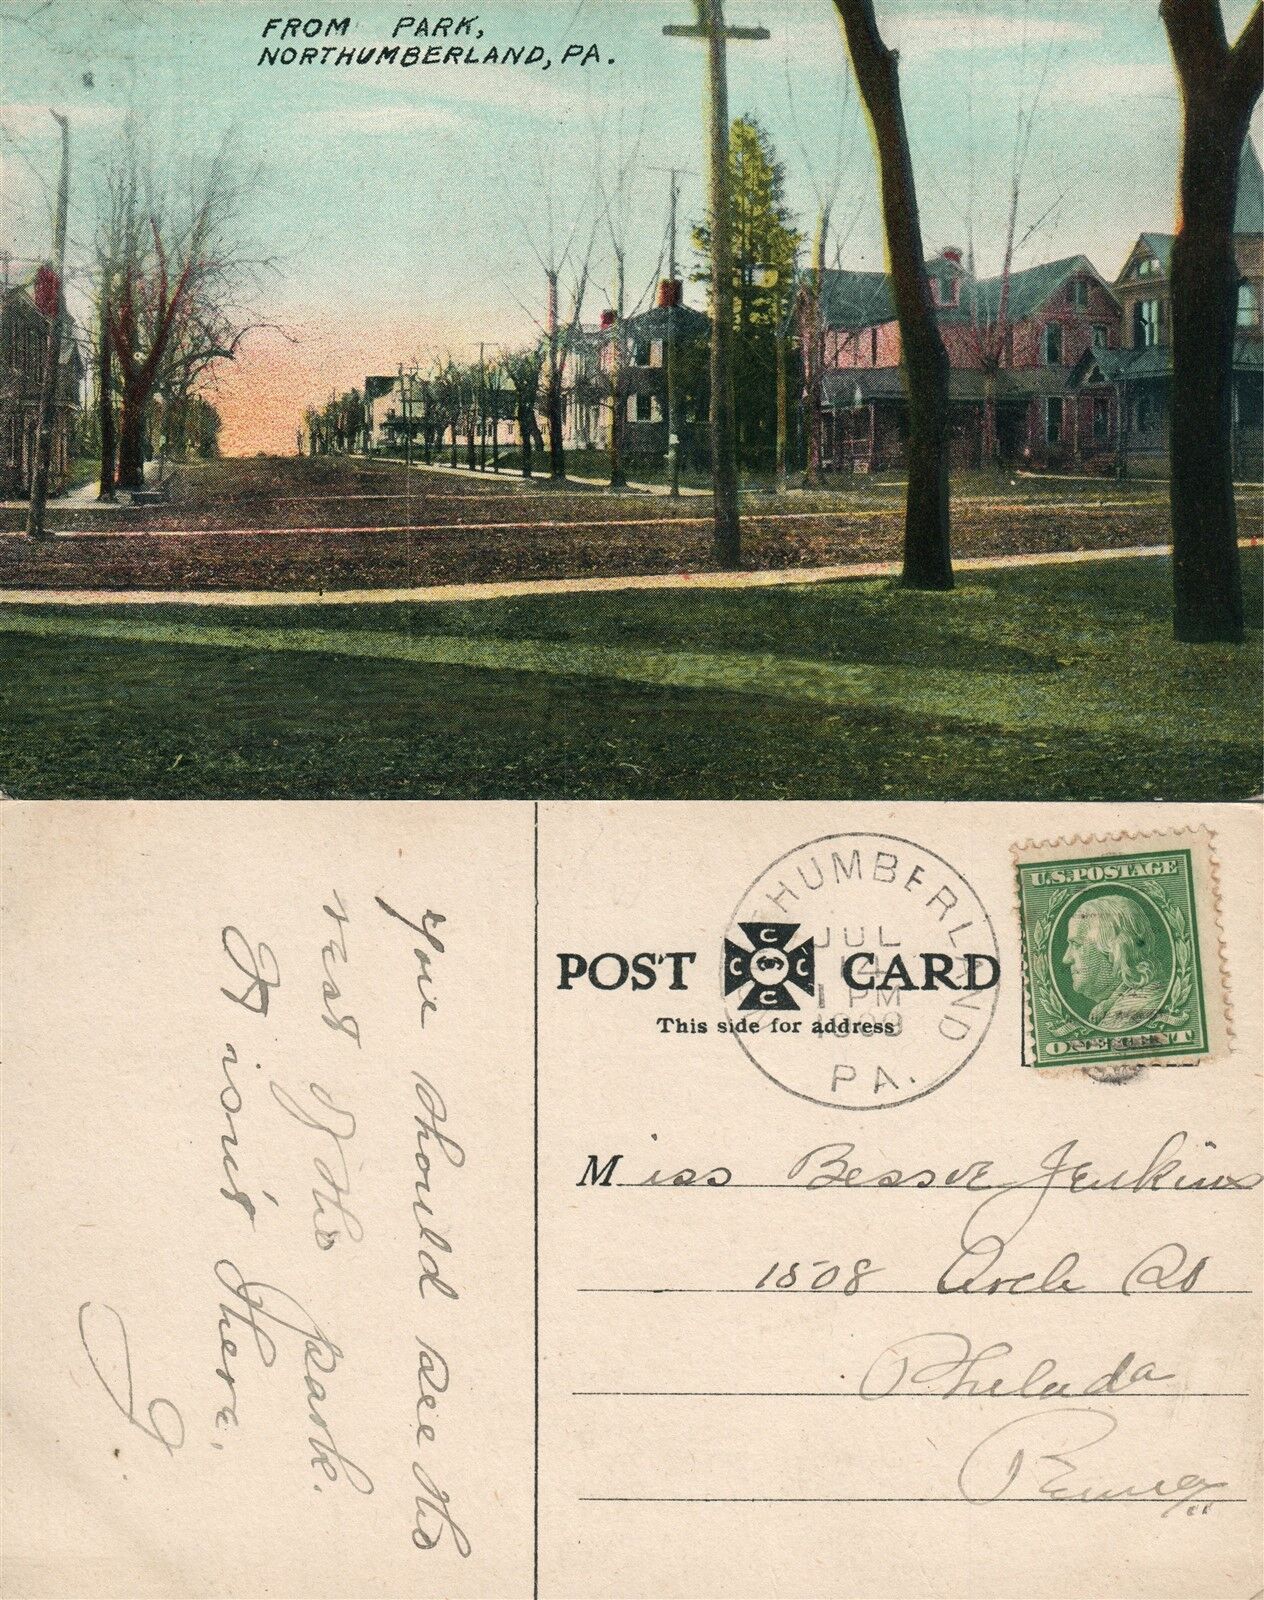 FROM PARK,
NORTHUMBERLAND, PA.
You should see the
rest of the park.
It isn't there.
J.
NORTHUMBERLAND
PA.
JUL
14
1 PM
1909
POST CARD
C C C C
This side for address
U.S. POSTAGE
ONE CENT
Miss Bessie Jenkins
1508 Arch St
Philada
Penna